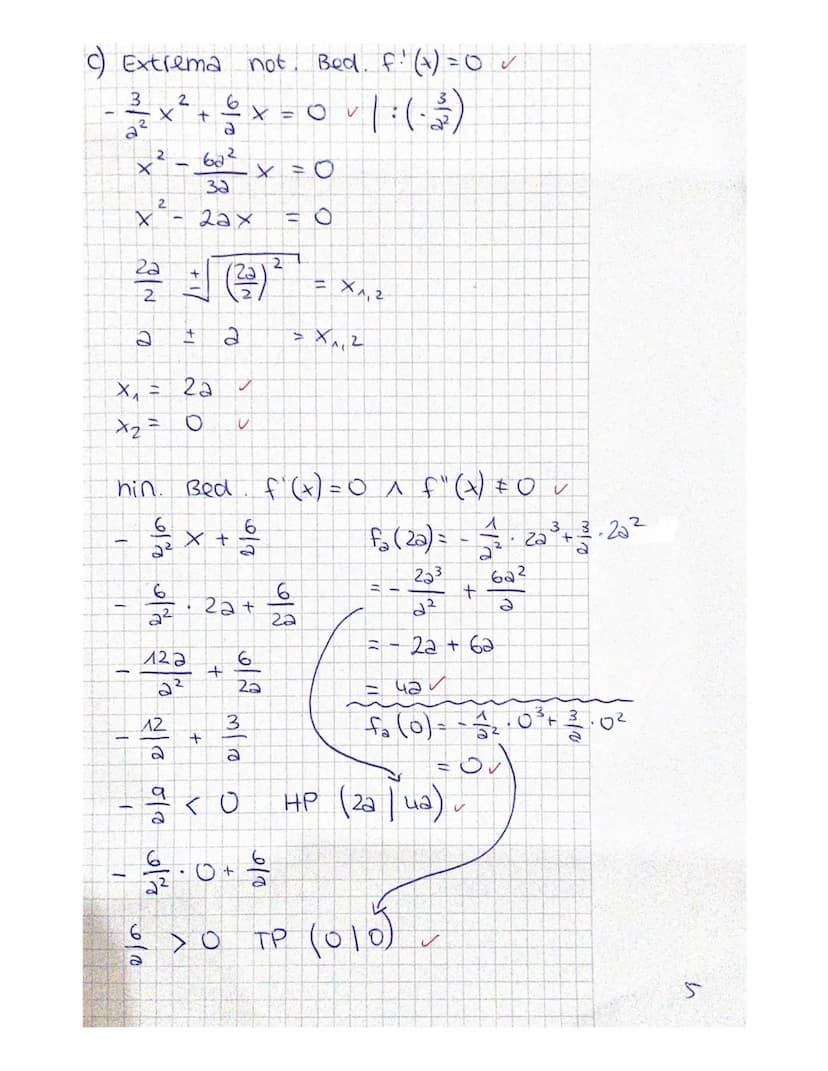 c) Extrema not. Bed. f'(x) = 0 ✓
- 3/a² x² + 6/a x = 0 ✓ | : (- 3/a²)
x² - 6a²/3a x = 0
x² - 2ax = 0
2a/2 ± √(2a/2)² = x₁,₂
a ± a = x₁,₂
x₁ = 2a ✓
x₂ = 0 ✓
hin. Bed. f'(x) = 0 ∧ f''(x) ≠ 0 ✓
- 6/a² x + 6/a
- 6/a² · 2a + 6/2a
- 12a/a² + 6/2a
- 12/a + 3/a
- 9/a < 0 HP (2a | 4a) ✓
- 6/a² · 0 + 6/a
6/a > 0 TP (0|0) ✓
fₐ(2a) = - 1/a² · 2a³ + 3/a · 2a²
= - 2a³/a² + 6a²/a
= - 2a + 6a
= 4a ✓
fₐ(0) = - 1/a² · 0³ + 3/a · 0²
= 0 ✓
5